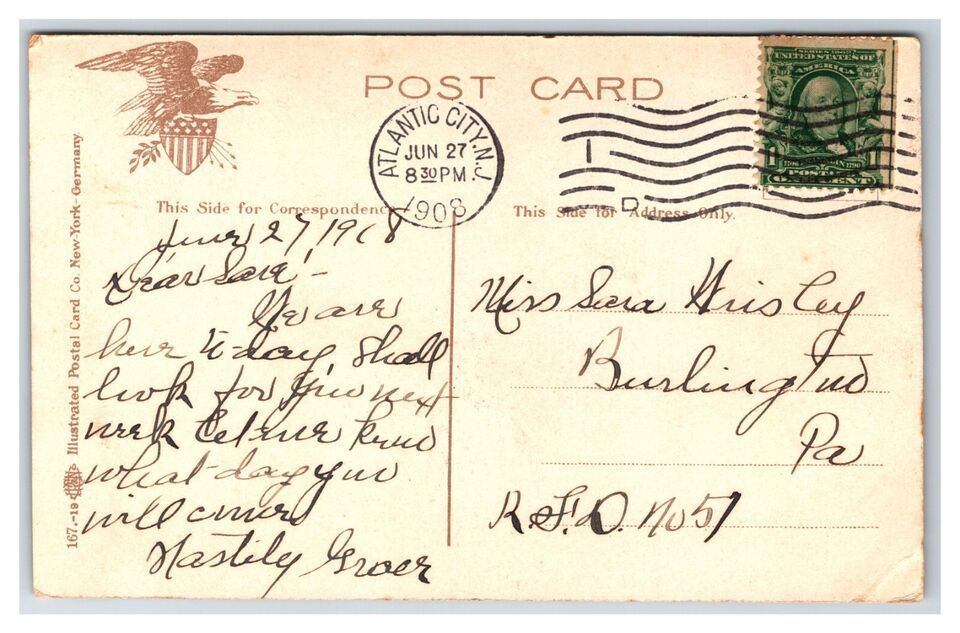 POST CARD
ATLANTIC CITY, N.J.
JUN 27
8 30 PM
1908
D
SERIES 1902
UNITED STATES OF
AMERICA
1 1
POSTAGE
ONE CENT
This Side for Correspondence
This Side for Address Only.
167.-19 Illustrated Postal Card Co. New-York-Germany
June 27/1908
Dear Sara:-
We are
here to-day, shall
look for you next
week let me know
what day you
will come
Hastily Grace
Miss Sara
Burlington
Pa
R.F.D. No 51